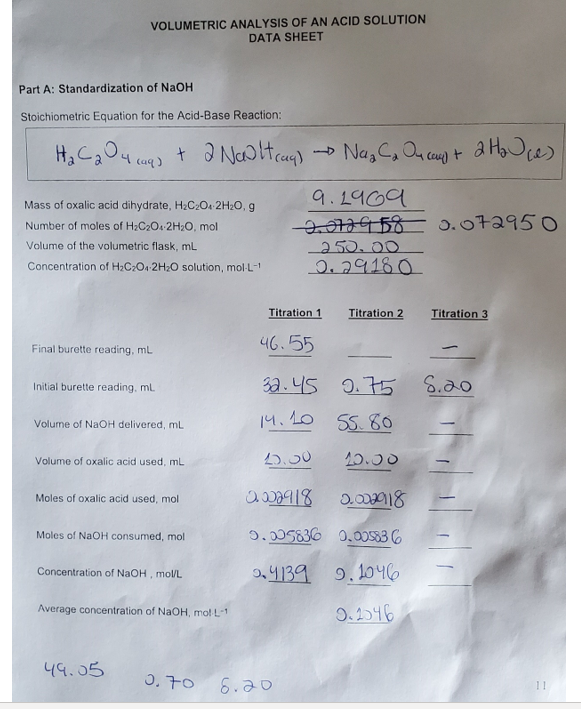 VOLUMETRIC ANALYSIS OF AN ACID SOLUTION
DATA SHEET
Part A: Standardization of NaOH
Stoichiometric Equation for the Acid-Base Reaction:
H₂C₂O₄(aq) + 2NaOH(aq) → Na₂C₂O₄(aq) + 2H₂O(l)
Mass of oxalic acid dihydrate, H₂C₂O₄·2H₂O, g 9.1969
Number of moles of H₂C₂O₄·2H₂O, mol 0.072958 0.072950
Volume of the volumetric flask, mL 250.00
Concentration of H₂C₂O₄·2H₂O solution, mol·L⁻¹ 0.29180
Titration 1 Titration 2 Titration 3
Final burette reading, mL 46.55 —
Initial burette reading, mL 32.45 0.75 8.20
Volume of NaOH delivered, mL 14.10 55.80 —
Volume of oxalic acid used, mL 10.00 10.00 —
Moles of oxalic acid used, mol 0.002918 0.002918 —
Moles of NaOH consumed, mol 0.005836 0.005836 —
Concentration of NaOH , mol/L 0.4139 0.1046 —
Average concentration of NaOH, mol·L⁻¹ 0.1046
49.05 0.70 8.20
11